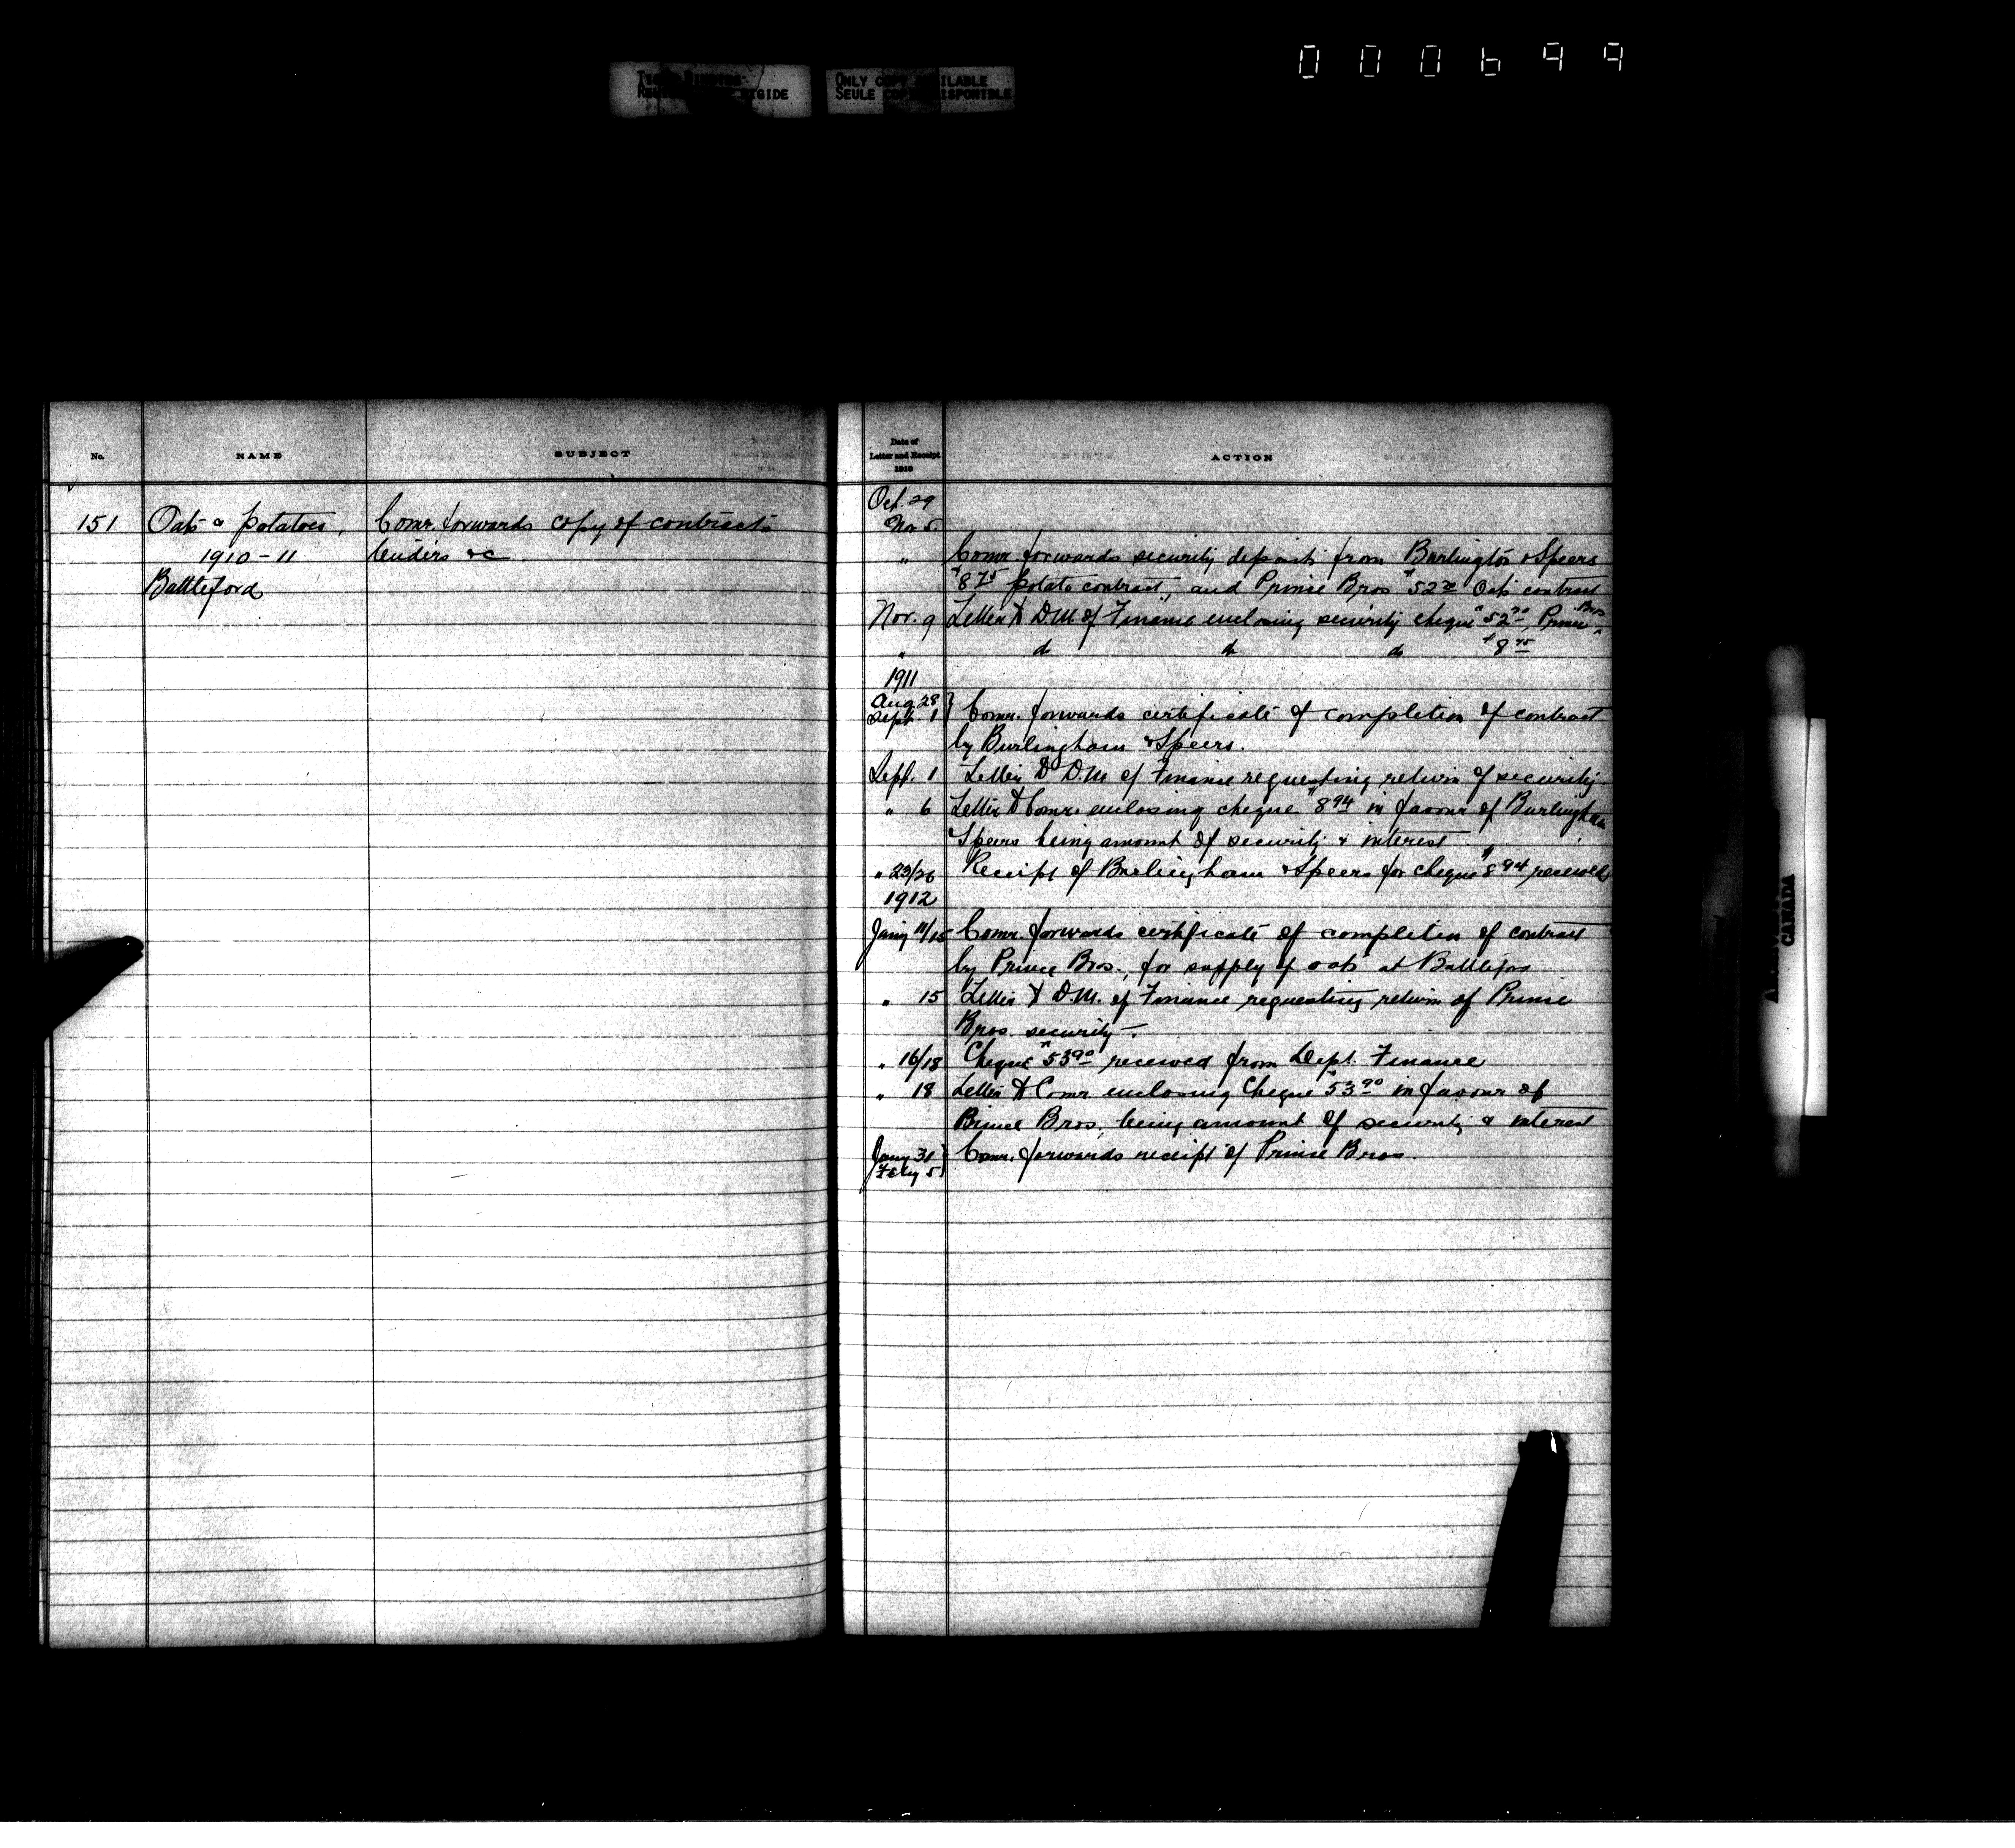 000699
TIGHT BINDING
RELIURE TROP RIGIDE
ONLY COPY AVAILABLE
SEULE COPIE DISPONIBLE
No. NAME SUBJECT
151 Oats & potatoes, Comr. forwards copy of contracts
1910-11 tenders &c
Battleford
Date of
Letter and Receipt ACTION
1910
Oct. 29
Nov 5.
" Comr forwards security deposits from Burlington & Speers
$8 75 potato contract, and Prince Bros $52 Oats contract
Nov. 9 Letter to D.M. of Finance enclosing security cheque $52 Prince Bros
" do do do $8 75
1911
Aug 28
Sept 1 } Comr. forwards certificate of completion of contract
by Burlingham & Speers.
Sept. 1 Letter to D.M. of Finance requesting return of security.
" 6 Letter to Comr. enclosing cheque $8 94 in favour of Burlingham
Speers being amount of security & interest
" 23/26 Receipt of Burlingham & Speers for cheque $8 94 received
1912
Jany 11/15 Comr. forwards certificate of completion of contract
by Prince Bros., for supply of oats at Battleford
" 15 Letter to D.M. of Finance requesting return of Prince
Bros. security.
" 16/18 Cheque $53 90 received from Dept. Finance
" 18 Letter to Comr enclosing Cheque $53 90 in favour of
Prince Bros, being amount of security & interest
Jany 31 } Comr. forwards receipt of Prince Bros.
Feby 5
CANADA